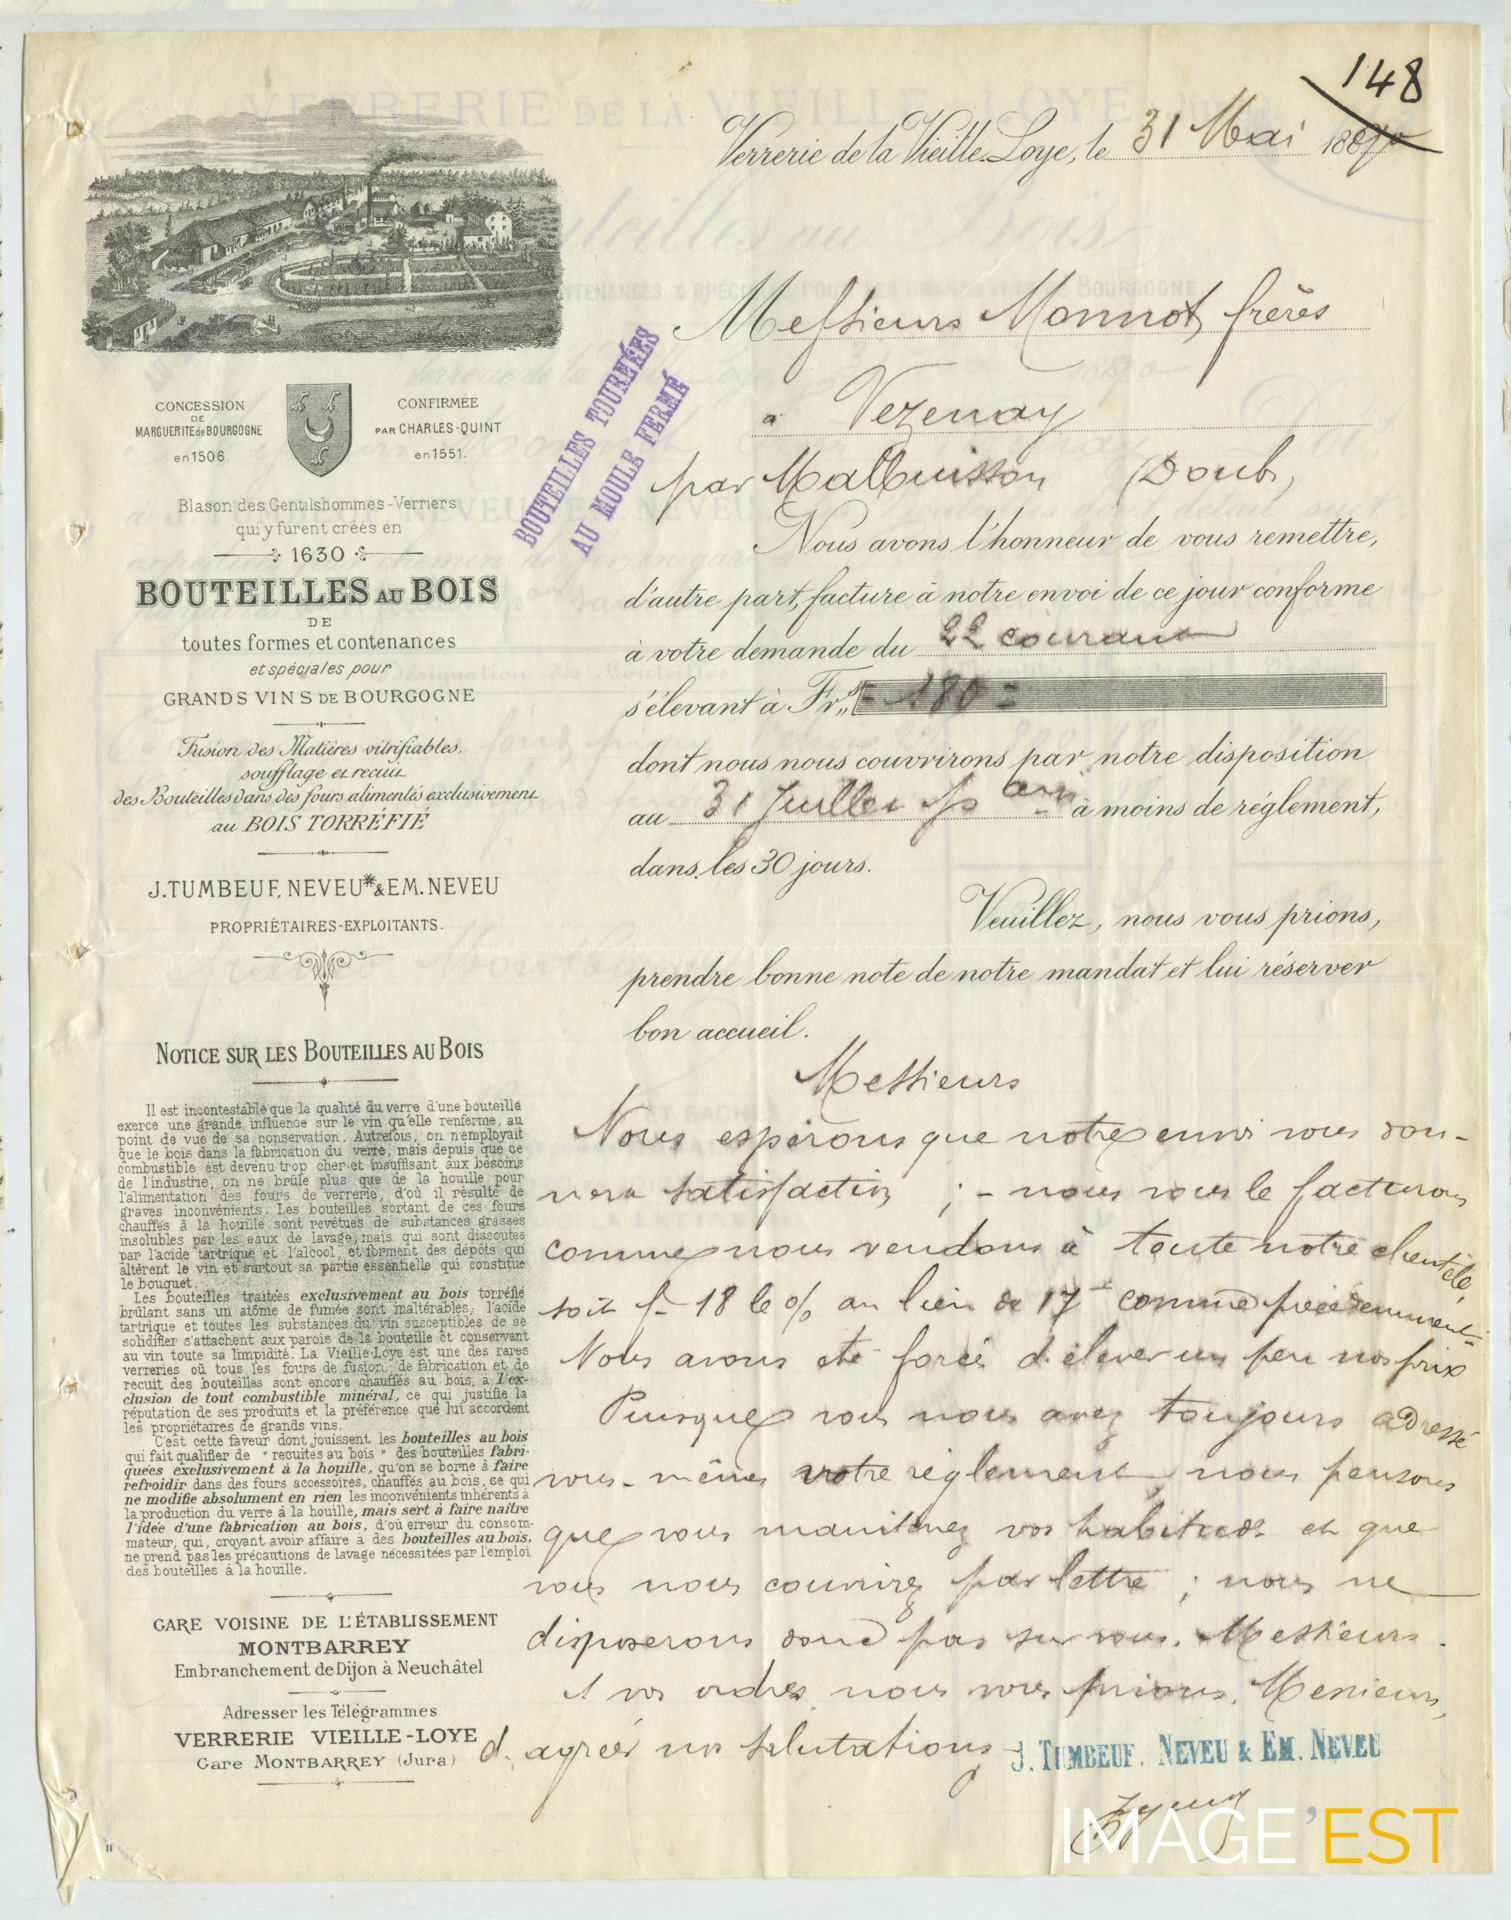 148
Verrerie de la Vieille-Loye, le 31 Mai 1890
Messieurs Monnot frères
à Vezenay
par Malbuisson (Doubs)
BOUTEILLES TOURNÉES
AU MOULE FERMÉ
Nous avons l'honneur de vous remettre,
d'autre part, facture à notre envoi de ce jour conforme
à votre demande du 22 courant
s'élevant à Frs „ = 180 =
dont nous nous couvrirons par notre disposition
au 31 Juillet à moins de réglement,
dans les 30 jours.
Veuillez, nous vous prions,
prendre bonne note de notre mandat et lui réserver
bon accueil.
Messieurs
Nous espérons que notre envoi vous don-
nera satisfaction ; - nous vous le facturons
comme nous vendons à toute notre clientèle
soit f- 18 le % au lieu de 17 comme précédemment
Nous avons été forcés d'élever un peu nos prix
Puisque vous nous avez toujours adressé
vous-mêmes votre règlement, nous pensons
que vous maintenez vos habitudes et que
vous nous couvrirez par lettre ; nous ne
disposerons donc pas sur vous, Messieurs.
A vos ordres, nous vous prions, Messieurs,
d'agréer nos salutations
J. TUMBEUF, NEVEU & EM. NEVEU
CONCESSION
DE
MARGUERITE de BOURGOGNE
en 1506
CONFIRMÉE
PAR CHARLES-QUINT
en 1551.
Blason des Gentilshommes-Verriers
qui y furent créés en
1630
BOUTEILLES AU BOIS
DE
toutes formes et contenances
et spéciales pour
GRANDS VINS DE BOURGOGNE
Fusion des Matières vitrifiables,
soufflage et recuit
des Bouteilles dans des fours alimentés exclusivement
au BOIS TORRÉFIÉ
J. TUMBEUF, NEVEU* & EM. NEVEU
PROPRIÉTAIRES-EXPLOITANTS.
NOTICE SUR LES BOUTEILLES AU BOIS
Il est incontestable que la qualité du verre d'une bouteille
exerce une grande influence sur le vin qu'elle renferme, au
point de vue de sa conservation. Autrefois, on n'employait
que le bois dans la fabrication du verre, mais depuis que ce
combustible est devenu trop cher et insuffisant aux besoins
de l'industrie, on ne brûle plus que de la houille pour
l'alimentation des fours de verrerie, d'où il résulte de
graves inconvénients. Les bouteilles sortant de ces fours
chauffés à la houille sont revêtues de substances grasses
insolubles par les eaux de lavage, mais qui sont dissoutes
par l'acide tartrique et l'alcool, et forment des dépôts qui
altèrent le vin et surtout sa partie essentielle qui constitue
le bouquet.
Les bouteilles traitées exclusivement au bois torréfié
brûlant sans un atôme de fumée sont inaltérables, l'acide
tartrique et toutes les substances du vin susceptibles de se
solidifier s'attachent aux parois de la bouteille et conservent
au vin toute sa limpidité. La Vieille-Loye est une des rares
verreries où tous les fours de fusion, de fabrication et de
recuit des bouteilles sont encore chauffés au bois, à l'ex-
clusion de tout combustible minéral, ce qui justifie la
réputation de ses produits et la préférence que lui accordent
les propriétaires de grands vins.
C'est cette faveur dont jouissent les bouteilles au bois
qui fait qualifier de "recuites au bois" des bouteilles fabri-
quées exclusivement à la houille, qu'on se borne à faire
refroidir dans des fours accessoires, chauffés au bois, ce qui
ne modifie absolument en rien les inconvénients inhérents à
la production du verre à la houille, mais sert à faire naître
l'idée d'une fabrication au bois, d'où erreur du consom-
mateur, qui, croyant avoir affaire à des bouteilles au bois,
ne prend pas les précautions de lavage nécessitées par l'emploi
des bouteilles à la houille.
GARE VOISINE DE L'ÉTABLISSEMENT
MONTBARREY
Embranchement de Dijon à Neuchâtel
Adresser les Télégrammes
VERRERIE VIEILLE-LOYE
Gare MONTBARREY (Jura)
IMAGE'EST